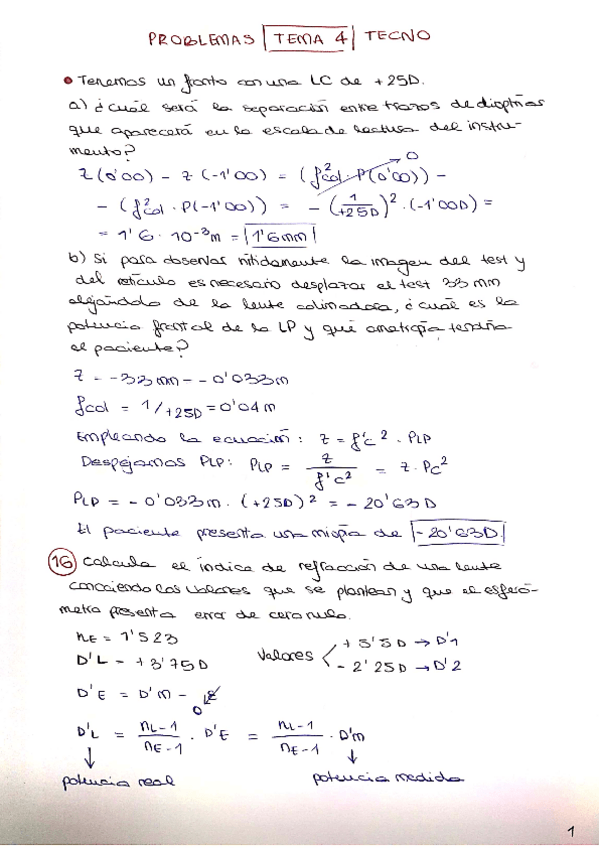 PROBLEMAS TEMA 4 TECNO
• Tenemos un fronto con una LC de +25D.
a) ¿cuál será la separación entre trazos de dioptrías
que aparecerá en la escala de lectura del instru-
mento?
z(0'00) - z(-1'00) = (f²col · P(0'00)) - 0
- (f²col · P(-1'00)) = - (1/+25D)² · (-1'00D) =
= 1'6 · 10⁻³m = 1'6mm
b) Si para observar nítidamente la imagen del test y
del retículo es necesario desplazar el test 33 mm
alejándolo de la lente colimadora, ¿cuál es la
potencia frontal de la LP y qué ametropía tendría
el paciente?
z = -33mm = -0'033m
fcol = 1/+25D = 0'04m
Empleando la ecuación: z = f'c² · PLP
Despejamos PLP: PLP = z/f'c² = z · Pc²
PLP = -0'033m · (+25D)² = -20'63D
El paciente presenta una miopía de -20'63D.
16 Calcula el índice de refracción de una lente
conociendo los valores que se plantean y que el esferó-
metro presenta error de cero nulo.
nE = 1'523
D'L = +3'75D
valores
+5'5D → D'1
-2'25D → D'2
D'E = D'm - ε 0
D'L = nL-1/nE-1 · D'E = nL-1/nE-1 · D'm
potencia real potencia medida
1